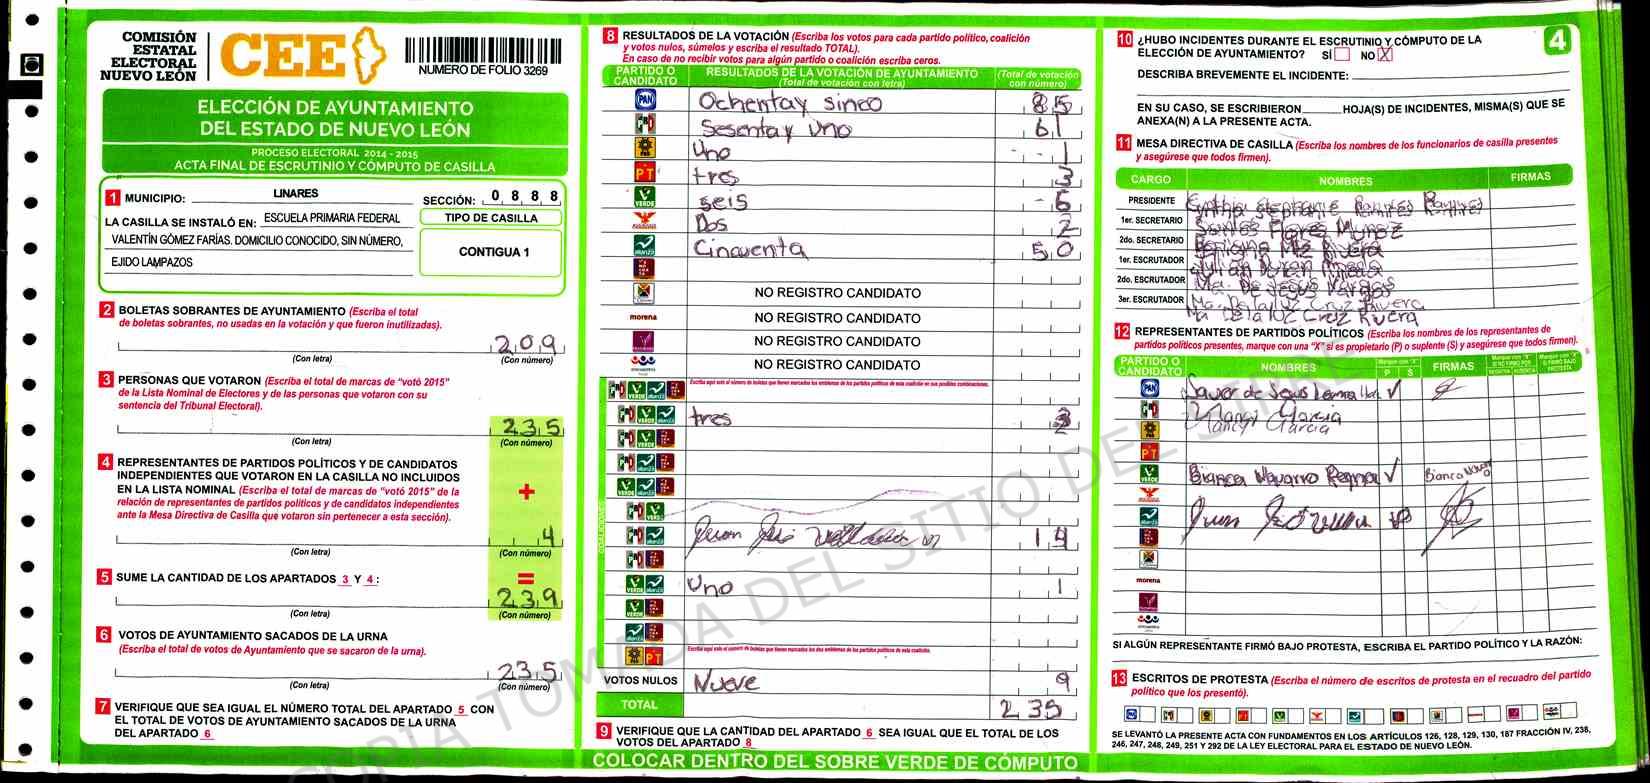 COMISIÓN
ESTATAL
ELECTORAL
NUEVO LEÓN
CEE
NUMERO DE FOLIO 3269
ELECCIÓN DE AYUNTAMIENTO
DEL ESTADO DE NUEVO LEÓN
PROCESO ELECTORAL 2014 - 2015
ACTA FINAL DE ESCRUTINIO Y CÓMPUTO DE CASILLA
1 MUNICIPIO: LINARES SECCIÓN: 0 8 8 8
LA CASILLA SE INSTALÓ EN: ESCUELA PRIMARIA FEDERAL
VALENTÍN GÓMEZ FARÍAS. DOMICILIO CONOCIDO, SIN NÚMERO,
EJIDO LAMPAZOS
TIPO DE CASILLA
CONTIGUA 1
2 BOLETAS SOBRANTES DE AYUNTAMIENTO (Escriba el total
de boletas sobrantes, no usadas en la votación y que fueron inutilizadas).
209
(Con letra) (Con número)
3 PERSONAS QUE VOTARON (Escriba el total de marcas de "votó 2015"
de la Lista Nominal de Electores y de las personas que votaron con su
sentencia del Tribunal Electoral).
235
(Con letra) (Con número)
4 REPRESENTANTES DE PARTIDOS POLÍTICOS Y DE CANDIDATOS
INDEPENDIENTES QUE VOTARON EN LA CASILLA NO INCLUIDOS
EN LA LISTA NOMINAL (Escriba el total de marcas de "votó 2015" de la
relación de representantes de partidos políticos y de candidatos independientes
ante la Mesa Directiva de Casilla que votaron sin pertenecer a esta sección).
+
4
(Con letra) (Con número)
5 SUME LA CANTIDAD DE LOS APARTADOS 3 Y 4 : =
239
(Con letra) (Con número)
6 VOTOS DE AYUNTAMIENTO SACADOS DE LA URNA
(Escriba el total de votos de Ayuntamiento que se sacaron de la urna).
235
(Con letra) (Con número)
7 VERIFIQUE QUE SEA IGUAL EL NÚMERO TOTAL DEL APARTADO 5 CON
EL TOTAL DE VOTOS DE AYUNTAMIENTO SACADOS DE LA URNA
DEL APARTADO 6
8 RESULTADOS DE LA VOTACIÓN (Escriba los votos para cada partido político, coalición
y votos nulos, súmelos y escriba el resultado TOTAL).
En caso de no recibir votos para algún partido o coalición escriba ceros.
PARTIDO O CANDIDATO RESULTADOS DE LA VOTACIÓN DE AYUNTAMIENTO (Total de votación con letra) (Total de votación con número)
PAN Ochentay sinco 85
PRD Sesentay Uno 61
Uno - - 1
PT tres 3
VERDE seis - 6
Dos 2
alianza Cincuenta 50
NO REGISTRO CANDIDATO
morena NO REGISTRO CANDIDATO
NO REGISTRO CANDIDATO
encuentro NO REGISTRO CANDIDATO
Escriba aquí solo el número de boletas que tienen marcados los emblemas de los partidos políticos de esta coalición en sus posibles combinaciones.
tres 3
14
Uno 1
Escriba aquí solo el número de boletas que tienen marcados los dos emblemas de los partidos políticos de esta coalición.
VOTOS NULOS Nueve 9
TOTAL 235
9 VERIFIQUE QUE LA CANTIDAD DEL APARTADO 6 SEA IGUAL QUE EL TOTAL DE LOS
VOTOS DEL APARTADO 8
COLOCAR DENTRO DEL SOBRE VERDE DE CÓMPUTO
10 ¿HUBO INCIDENTES DURANTE EL ESCRUTINIO Y CÓMPUTO DE LA
ELECCIÓN DE AYUNTAMIENTO? SÍ NO X
4
DESCRIBA BREVEMENTE EL INCIDENTE:
EN SU CASO, SE ESCRIBIERON HOJA(S) DE INCIDENTES, MISMA(S) QUE SE
ANEXA(N) A LA PRESENTE ACTA.
11 MESA DIRECTIVA DE CASILLA (Escriba los nombres de los funcionarios de casilla presentes
y asegúrese que todos firmen).
CARGO NOMBRES FIRMAS
PRESIDENTE Cynthia Stephanie Ramires Ramires
1er. SECRETARIO Santos Flores Munoz
2do. SECRETARIO Rivera
1er. ESCRUTADOR Julian Duran
2do. ESCRUTADOR Ma. De Jesus Vargas
3er. ESCRUTADOR Ma. De la luz Cruz Rivera
12 REPRESENTANTES DE PARTIDOS POLÍTICOS (Escriba los nombres de los representantes de
partidos políticos presentes, marque con una "X" si es propietario (P) o suplente (S) y asegúrese que todos firmen).
PARTIDO O CANDIDATO NOMBRES Marque con "X" P S FIRMAS Marque con "X" SI NO FIRMÓ POR NEGATIVA AUSENCIA Marque con "X" SI FIRMÓ BAJO PROTESTA
PAN Javier de Jesus
Nancy Garcia
PT
VERDE Bianca Navarro Bianca
morena
encuentro
SI ALGÚN REPRESENTANTE FIRMÓ BAJO PROTESTA, ESCRIBA EL PARTIDO POLÍTICO Y LA RAZÓN:
13 ESCRITOS DE PROTESTA (Escriba el número de escritos de protesta en el recuadro del partido
político que los presentó).
SE LEVANTÓ LA PRESENTE ACTA CON FUNDAMENTOS EN LOS ARTICULOS 126, 128, 129, 130, 187 FRACCIÓN IV, 238,
246, 247, 248, 249, 251 Y 292 DE LA LEY ELECTORAL PARA EL ESTADO DE NUEVO LEÓN.
COPIA TOMADA DEL SITIO DEL